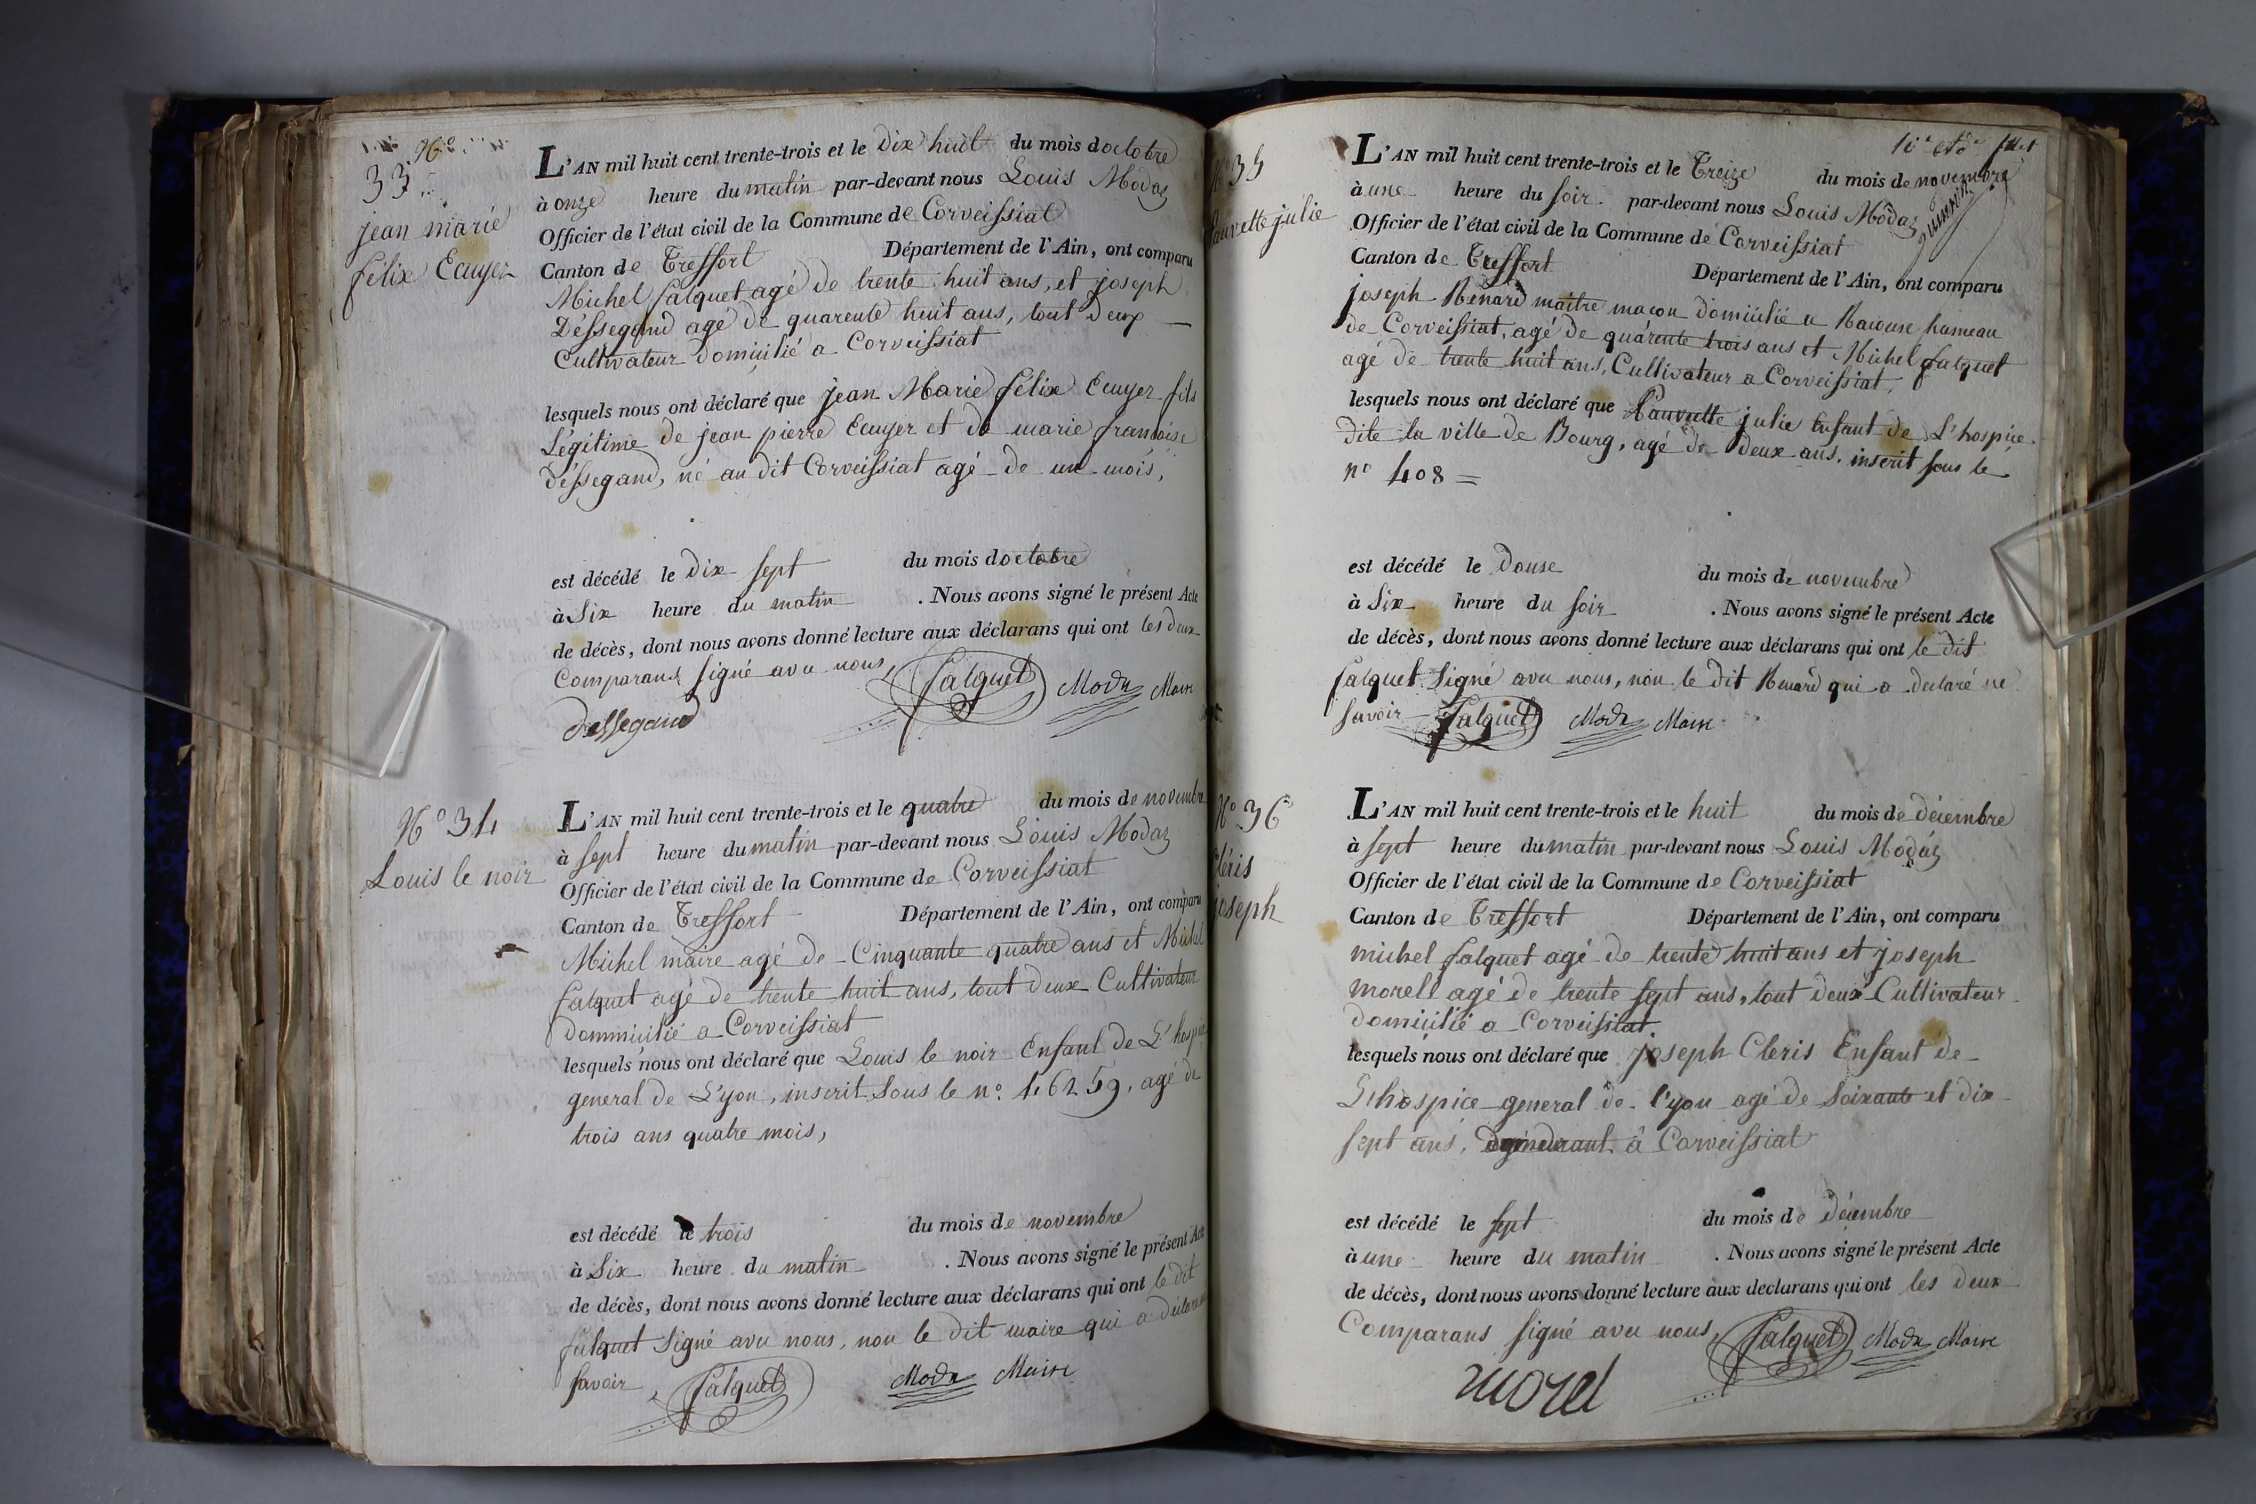 N°
33
jean marie
felix Ecuyer
L'AN mil huit cent trente-trois et le dix huit du mois d octobre
à onze heure du matin par-devant nous Louis Modaz
Officier de l'état civil de la Commune de Corveissiat
Canton de Treffort Département de l'Ain, ont comparu
Michel falquet agé de trente huit ans, et joseph
Dessegand agé de quarente huit ans, tout deux
Cultivateur domicilié a Corveissiat
lesquels nous ont déclaré que jean Marie félix Ecuyer fils
Légitime de jean pierre Ecuyer et de marie françoise
dessegand, né au dit Corveissiat agé de un mois,
est décédé le dix sept du mois d octobre
à Six heure du matin . Nous avons signé le présent Acte
de décès, dont nous avons donné lecture aux déclarans qui ont les deux
Comparans signé avec nous,
falquet Modaz Maire
dessegand
N° 34
Louis le noir
L'AN mil huit cent trente-trois et le quatre du mois de novembre
à sept heure du matin par-devant nous Louis Modaz
Officier de l'état civil de la Commune de Corveissiat
Canton de Treffort Département de l'Ain, ont comparu
Michel maire agé de Cinquante quatre ans et Michel
falquet agé de trente huit ans, tout deux Cultivateur
dommicilié a Corveissiat
lesquels nous ont déclaré que Louis le noir Enfant de L'hospice
general de L'yon, inscrit Sous le n°. 46259, agé de
trois ans quatre mois,
est décédé le trois du mois de novembre
à Six heure du matin . Nous avons signé le présent Acte
de décès, dont nous avons donné lecture aux déclarans qui ont le dit
falquet Signé avec nous, non le dit maire qui a déclaré
savoir, falquet Modaz Maire
N° 35
Pauvette julie
L'AN mil huit cent trente-trois et le Treize du mois de novembre
à une heure du soir par-devant nous Louis Modaz
Officier de l'état civil de la Commune de Corveissiat
Canton de Treffort Département de l'Ain, ont comparu
joseph Renard maître maçon domicilié a Racouse hameau
de Corveissiat, agé de quarente trois ans et Michel falquet
agé de trente huit ans, Cultivateur a Corveissiat,
lesquels nous ont déclaré que Pauvette julie Enfant de L'hospice
dite la ville de Bourg, agé de deux ans, inscrit sous le
n° 408 =
est décédé le douse du mois de novembre
à Six heure du soir . Nous avons signé le présent Acte
de décès, dont nous avons donné lecture aux déclarans qui ont le dit
falquet Signé avec nous, non le dit Renard qui a declaré ne
savoir falquet Modaz Maire
N° 36
Cléris
joseph
L'AN mil huit cent trente-trois et le huit du mois de décembre
à sept heure du matin par-devant nous Louis Modaz
Officier de l'état civil de la Commune de Corveissiat
Canton de Treffort Département de l'Ain, ont comparu
michel falquet agé de trente huit ans et joseph
morell agé de trente sept ans, tout deux Cultivateur
domicilié a Corveissiat.
lesquels nous ont déclaré que joseph Cleris Enfant de
L'hospice general de l'yon agé de Soixante et dix
sept ans, à Corveissiat
est décédé le sept du mois de décembre
à une heure du matin . Nous avons signé le présent Acte
de décès, dont nous avons donné lecture aux declarans qui ont les deux
Comparans signé avec nous, falquet Modaz Maire
morel